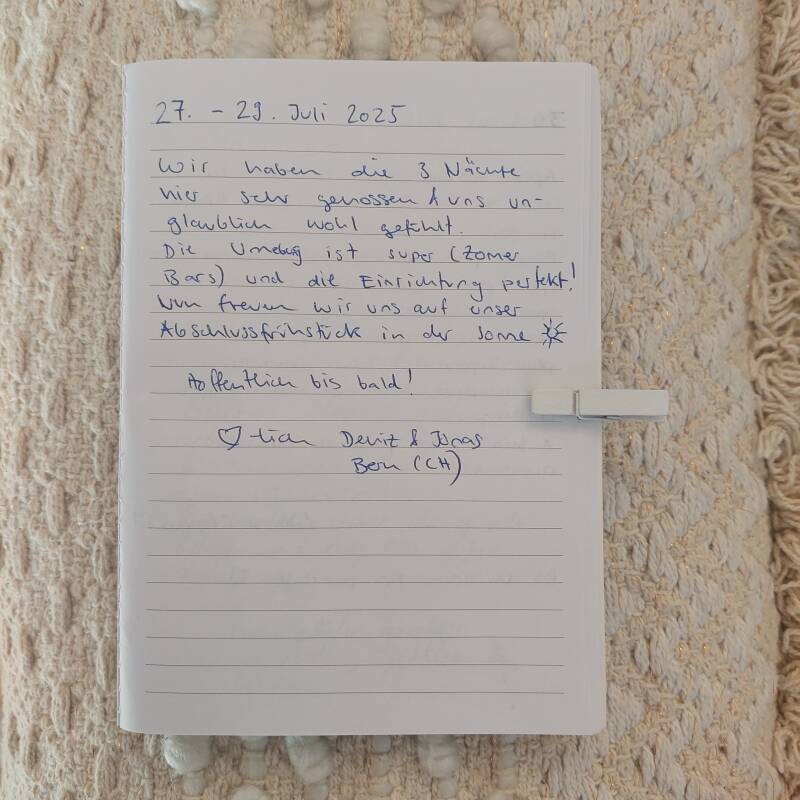 27. - 29. Juli 2025
Wir haben die 3 Nächte
hier sehr genossen & uns un-
glaublich wohl gefühlt.
Die Umgebung ist super (Zomer
Bars) und die Einrichtung perfekt!
Nun freuen wir uns auf unser
Abschlussfrühstück in der Sonne
Hoffentlich bis bald!
♡-lich Deniz & Jonas
Bern (CH)